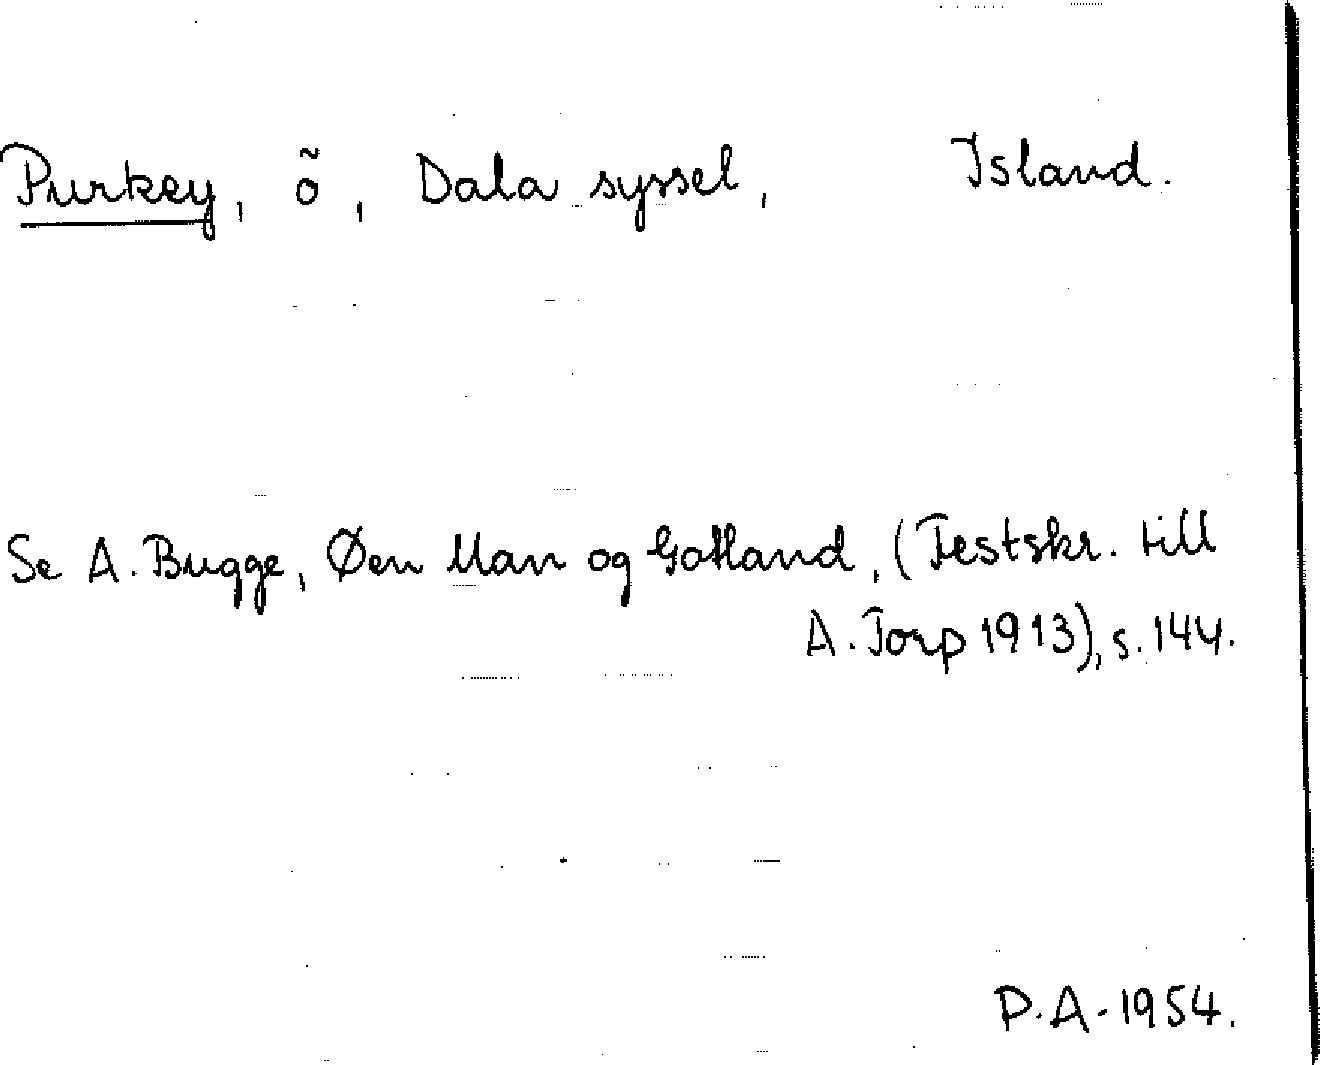 Purkey, ö, Dala syssel, Island.
Se A. Bugge, Øen Man og Gotland, (Festskr. till
A. Torp 1913), s. 144.
P.A. 1954.